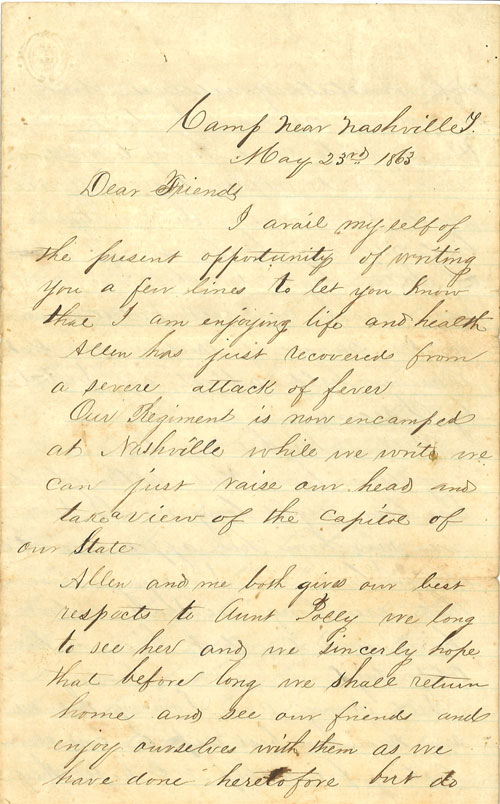 Camp near Nashville T.
May 23rd 1863
Dear Friends
I avail my self of
the present opportunity of writing
you a few lines to let you know
that I am enjoying life and health
Allen has just recovered from
a severe attack of fever
Our Regiment is now encamped
at Nashville while we write we
can just raise our head and
take a view of the capitol of
our State
Allen and me both gives our best
respects to Aunt Polly we long
to see her and we sincerly hope
that before long we shall return
home and see our friends and
enjoy ourselves with them as we
have done heretofore but do